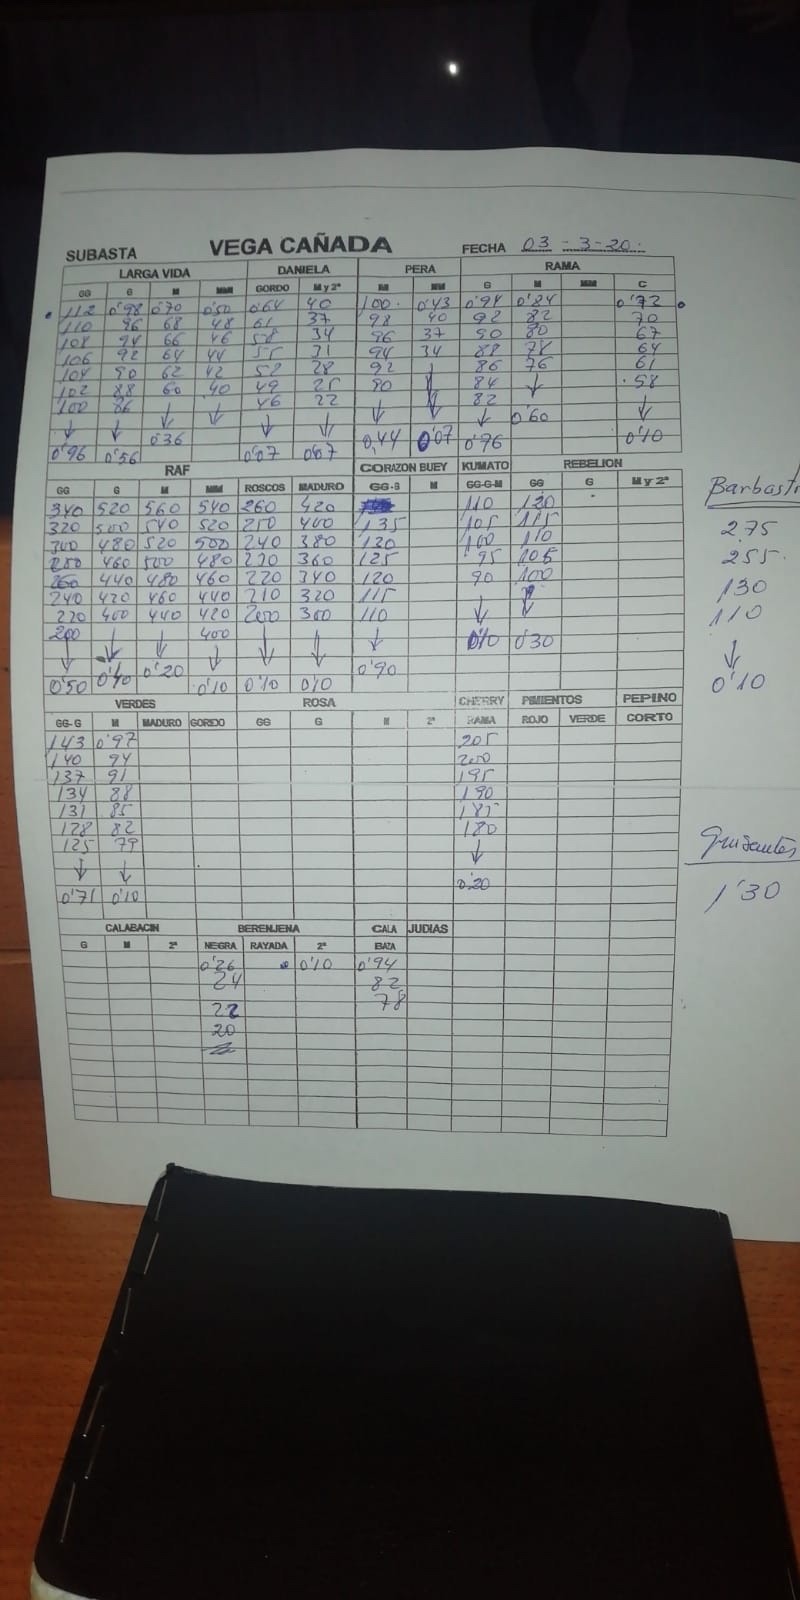 SUBASTA VEGA CAÑADA FECHA 03 - 3-20.
LARGA VIDA DANIELA PERA RAMA
GG G M MM GORDO M y 2ª M MM G M MM C
112 0'98 0'70 0'50 0'64 40 100 0'43 0'94 0'84 0'72
110 96 68 48 61 37 98 40 92 82 70
108 94 66 46 58 34 96 37 90 80 67
106 92 64 44 55 31 94 34 88 78 64
104 90 62 42 52 28 92 86 76 61
102 88 60 40 49 25 90 84 ↓ 58
100 86 ↓ ↓ 46 22 ↓ ↓ 82 ↓
↓ ↓ 0'36 ↓ ↓ 0,44 0'07 ↓ 0'60 0'10
0'96 0'56 0'07 0'07 0'76
RAF CORAZON BUEY KUMATO REBELION
GG G M MM ROSCOS MADURO GG-G M GG-G-M GG G M y 2ª
340 520 560 540 260 420 110 120
320 500 540 520 250 400 135 105 115
300 480 520 500 240 380 120 100 110
280 460 500 480 230 360 125 95 105
260 440 480 460 220 340 120 90 100
240 420 460 440 210 320 115
220 400 440 420 200 300 110 ↓ ↓
200 ↓ ↓ 400 ↓ ↓ ↓ 0'10 0'30
↓ 0'20 ↓ 0'90
0'50 0'40 0'10 0'10 0'10
Barbastr
2.75
255
130
110
↓
0'10
VERDES ROSA CHERRY PIMIENTOS PEPINO
GG-G M MADURO GORDO GG G M 2ª RAMA ROJO VERDE CORTO
143 0'97 205
140 94 200
137 91 195
134 88 190
131 85 185
128 82 180
125 79 ↓
↓ ↓ 0'20
0'71 0'10
Guisantes
1'30
CALABACIN BERENJENA CALA JUDIAS
G M 2ª NEGRA RAYADA 2ª BAZA
0'26 0'10 0'94
24 82
22 78
20